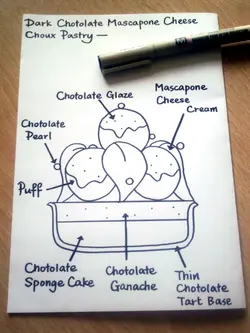 Dark Chotolate Mascapone Cheese
Choux Pastry —
Chotolate Glaze
Mascapone
Cheese
Cream
Chotolate
Pearl
Puff
Chotolate
Sponge Cake
Chotolate
Ganache
Thin
Chotolate
Tart Base